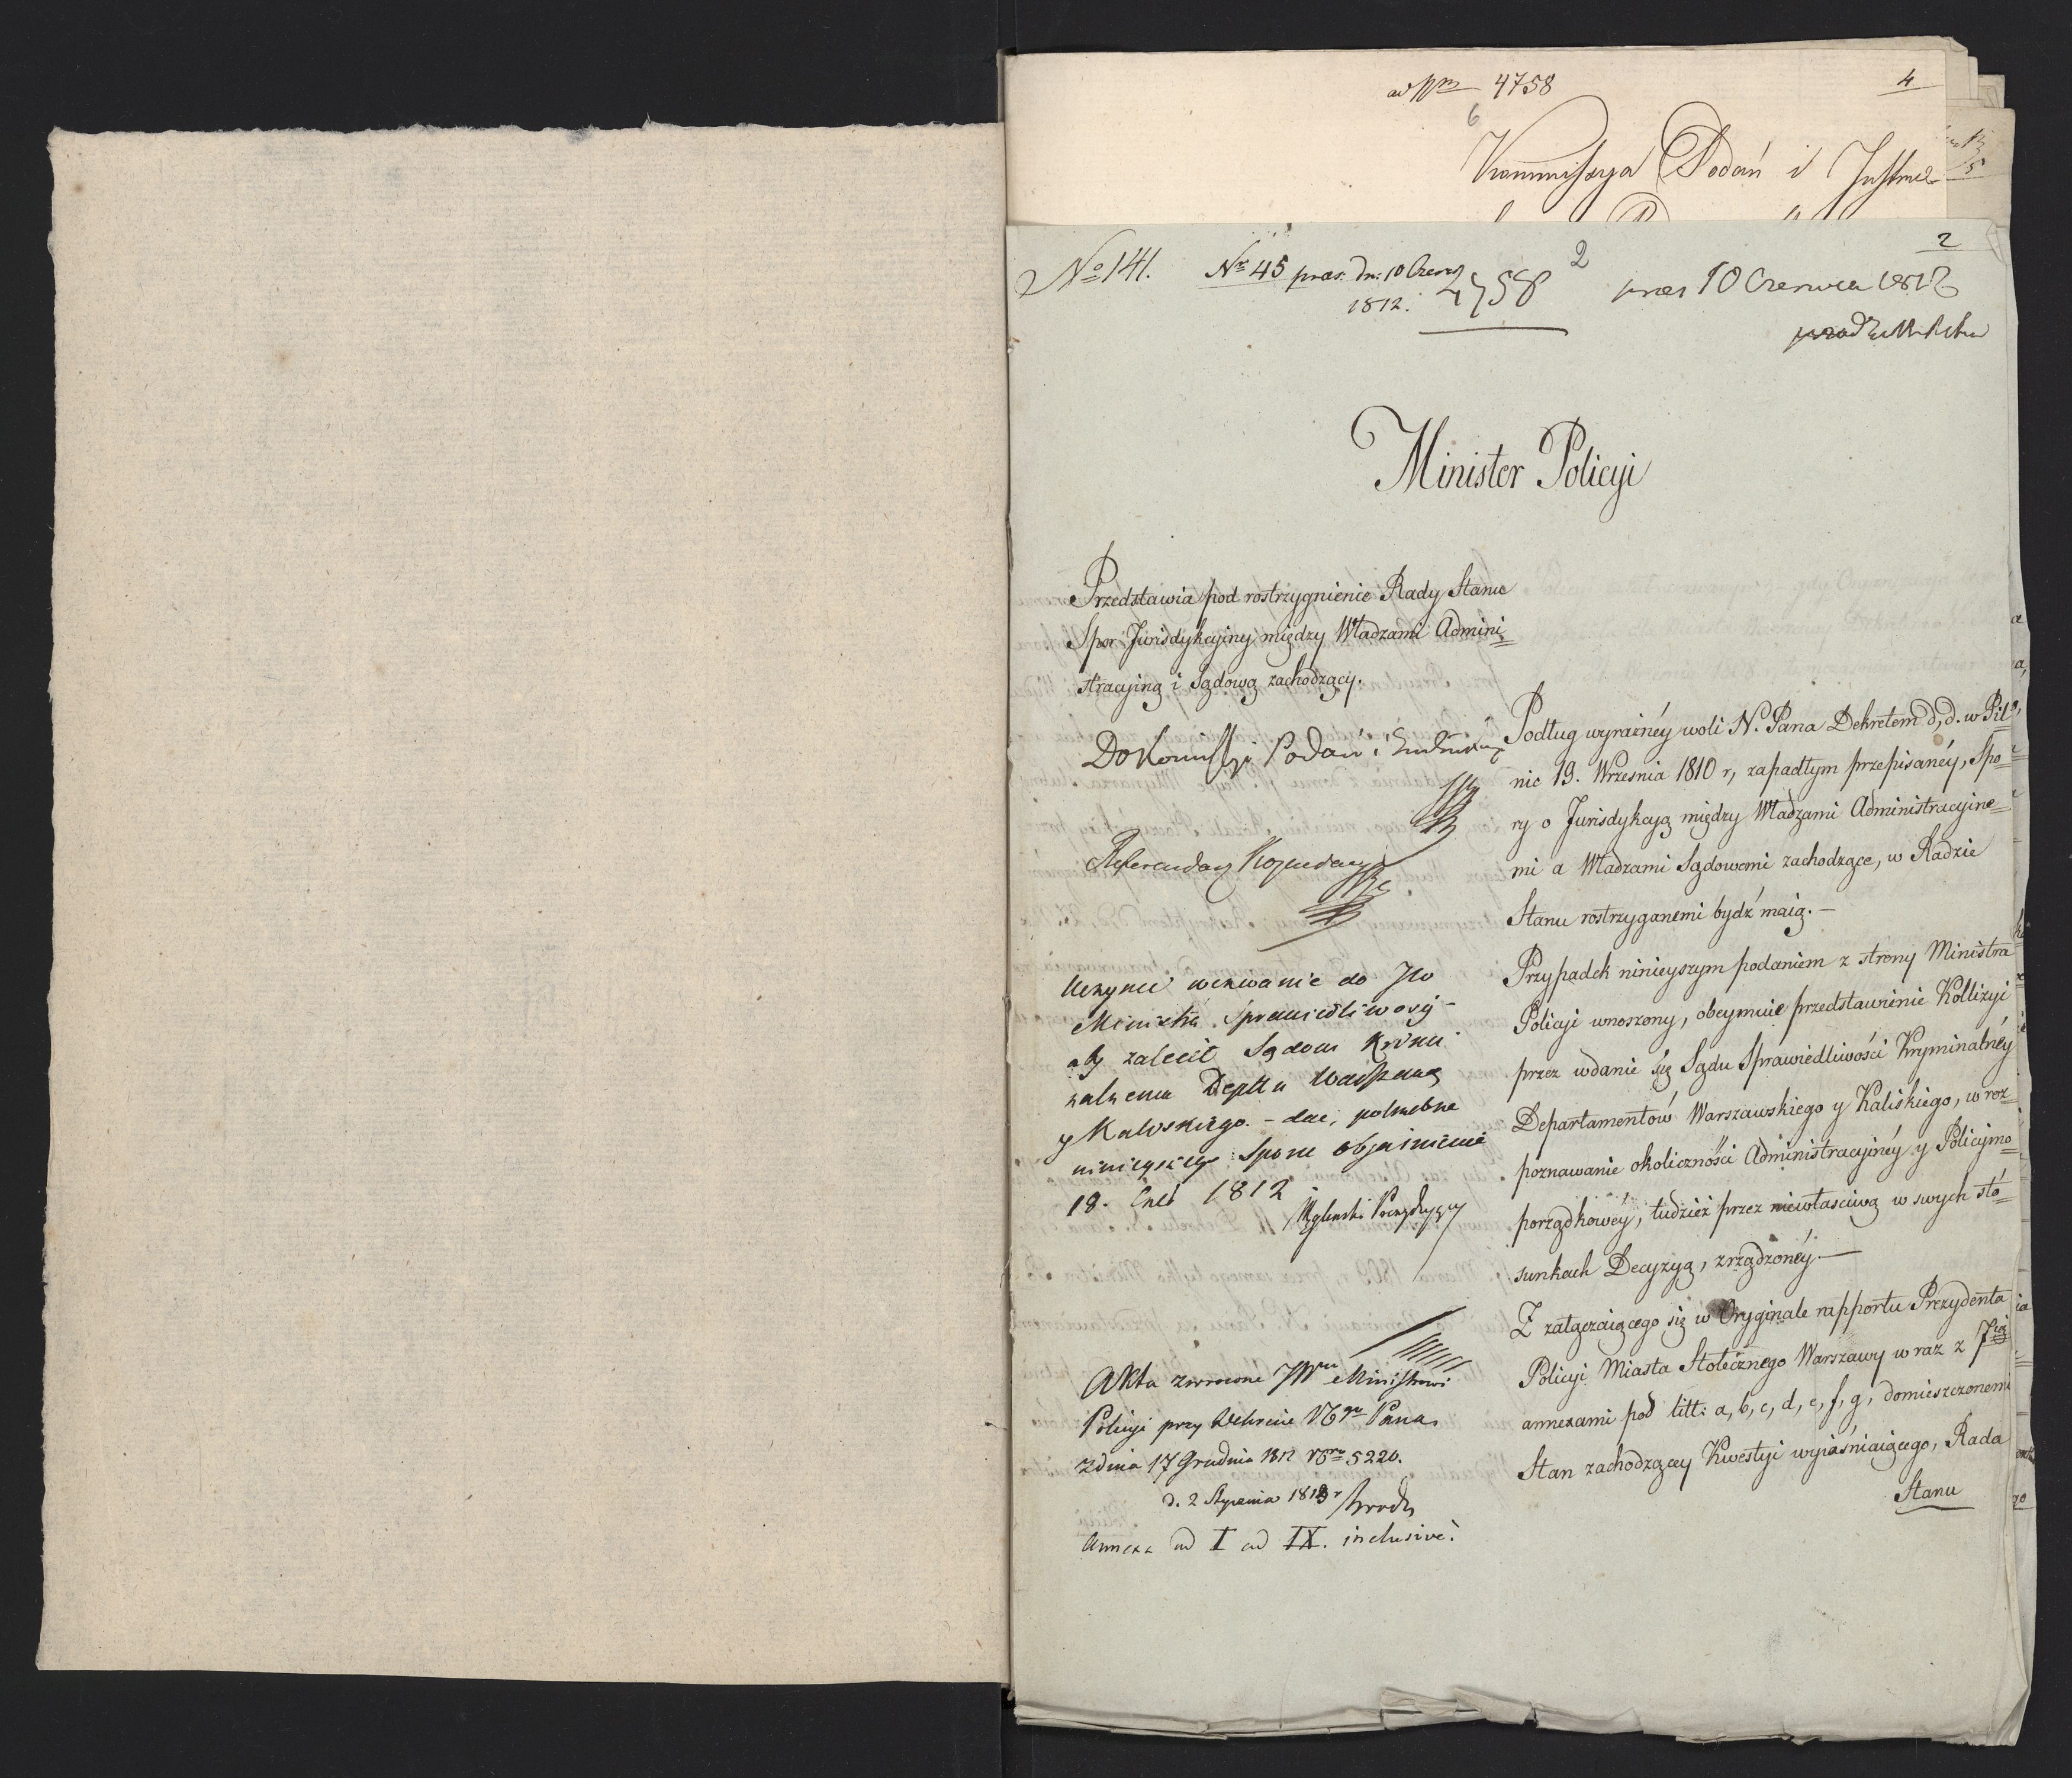 ad Nrm 4758
4
6
Kommissya Podań i Instruk-
2
No 141.
Nr 45 praes. dn: 10 Czerw
1812.
4758
2
praes 10 Czerwca 1812
Minister Policyi
Przedstawia pod rostrzygnienie Rady Stanu
Spor Jurisdykcyiny między Władzami Admini=
stracyiną i Sądową zachodzący.
Do Komissyi Podań i
Referendarz
Uczynić wezwanie do JW
Ministra Sprawiedliwości
aby zalecił Sądom Krimi
nalnemu Deptu Warszaws
y Kaliskiego. – dać, potrzebne
ninieyszego Sporu objaśnienie
18. Czer 1812
Akta zwrocone JWmu Ministrowi
Policyi przy Dekrecie NGgo Pana
z dnia 17 Grudnia 1812 Nro 5220.
d. 2 Stycznia 1813 r
Annexa ad I ad IX. inclusive.
Podług wyraźnéy woli N. Pana Dekretem d, d. w Pil=
nic 19. Wrzesnia 1810 r, zapadłym przepisanéy, Spo=
ry o Jurisdykcyą między Władzami Administracyine=
mi a Władzami Sądowemi zachodzące, w Radzie
Stanu rostrzyganemi bydź maią. —
Przypadek ninieyszym podaniem z strony Ministra
Policyi wnoszony, obeymuie przedstawienie Kollizyi
przez wdanie się Sądu Sprawiedliwości Kryminalnéy
Departamentow Warszawskiego y Kaliskiego, w roz=
poznawanie okoliczności Administracyinéy y Policyino=
porządkowéy, tudzież przez niewłasciwą w swych sto=
sunkach Decyzyą, zrządzonéy —
Z załączaiącego się w Oryginale rapportu Prezydenta
Policyi Miasta Stołecznego Warszawy wraz z 7ią
annexami pod litt: a, b, c, d, e, f, g, domieszczonemi
Stan zachodzący Kwestyi wyiaśniaiącego, Rada
Stanu